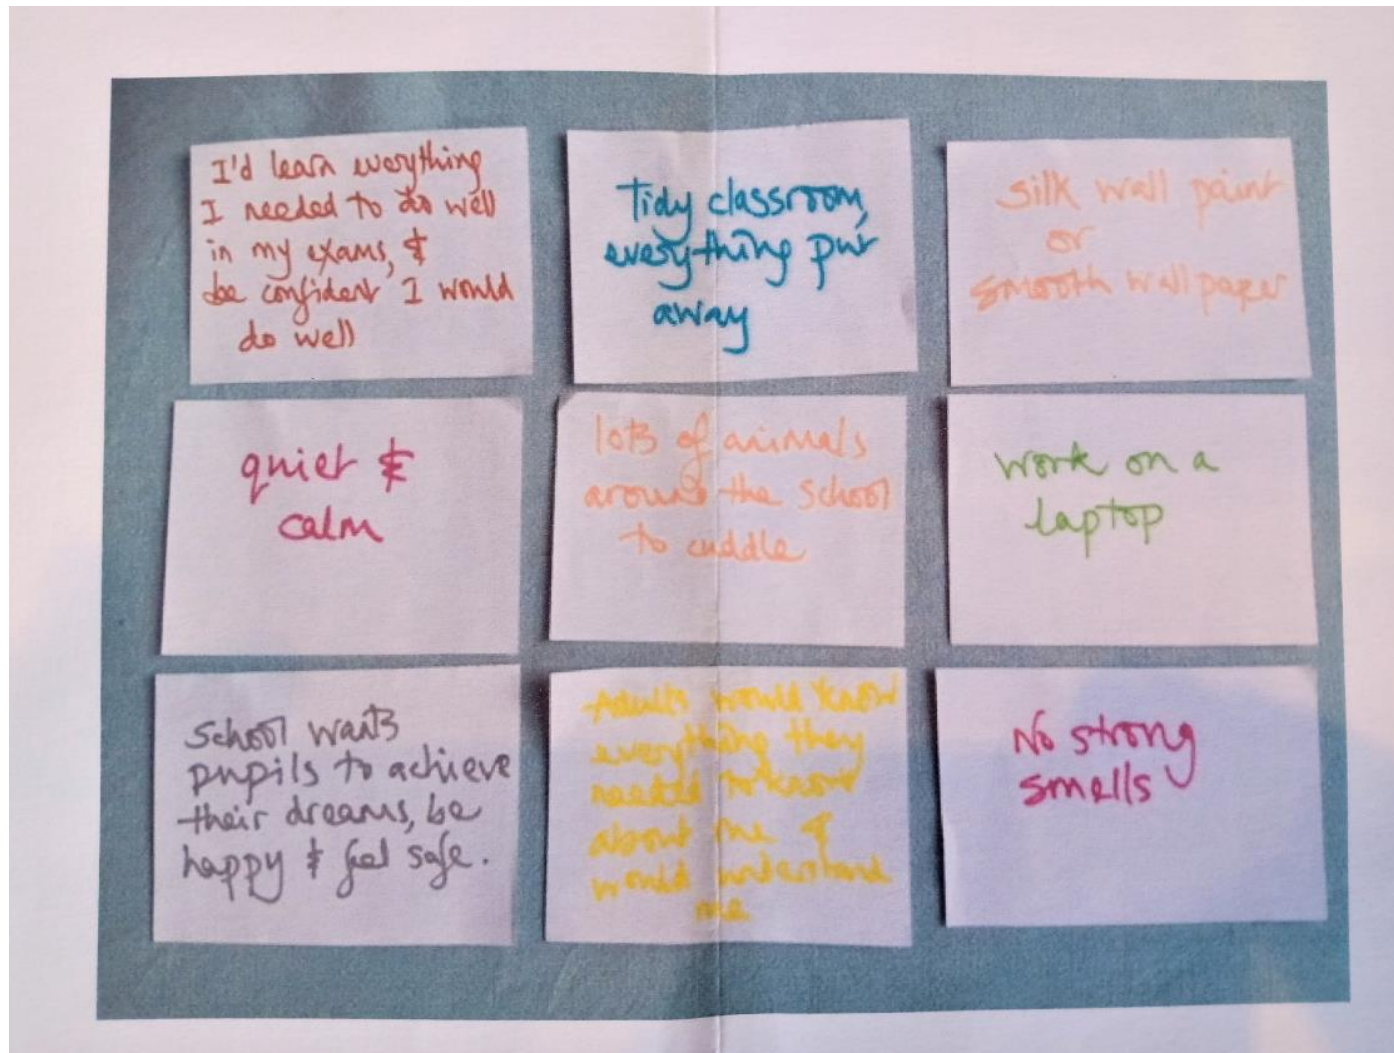 I'd learn everything
I needed to do well
in my exams, &
be confident I would
do well
Tidy classroom,
everything put
away
silk wall paint
or
smooth wallpaper
quiet &
calm
lots of animals
around the school
to cuddle
work on a
laptop
School wants
pupils to achieve
their dreams, be
happy & feel safe.
Adults would know
everything they
needed to know
about me &
would understand
me
No strong
smells